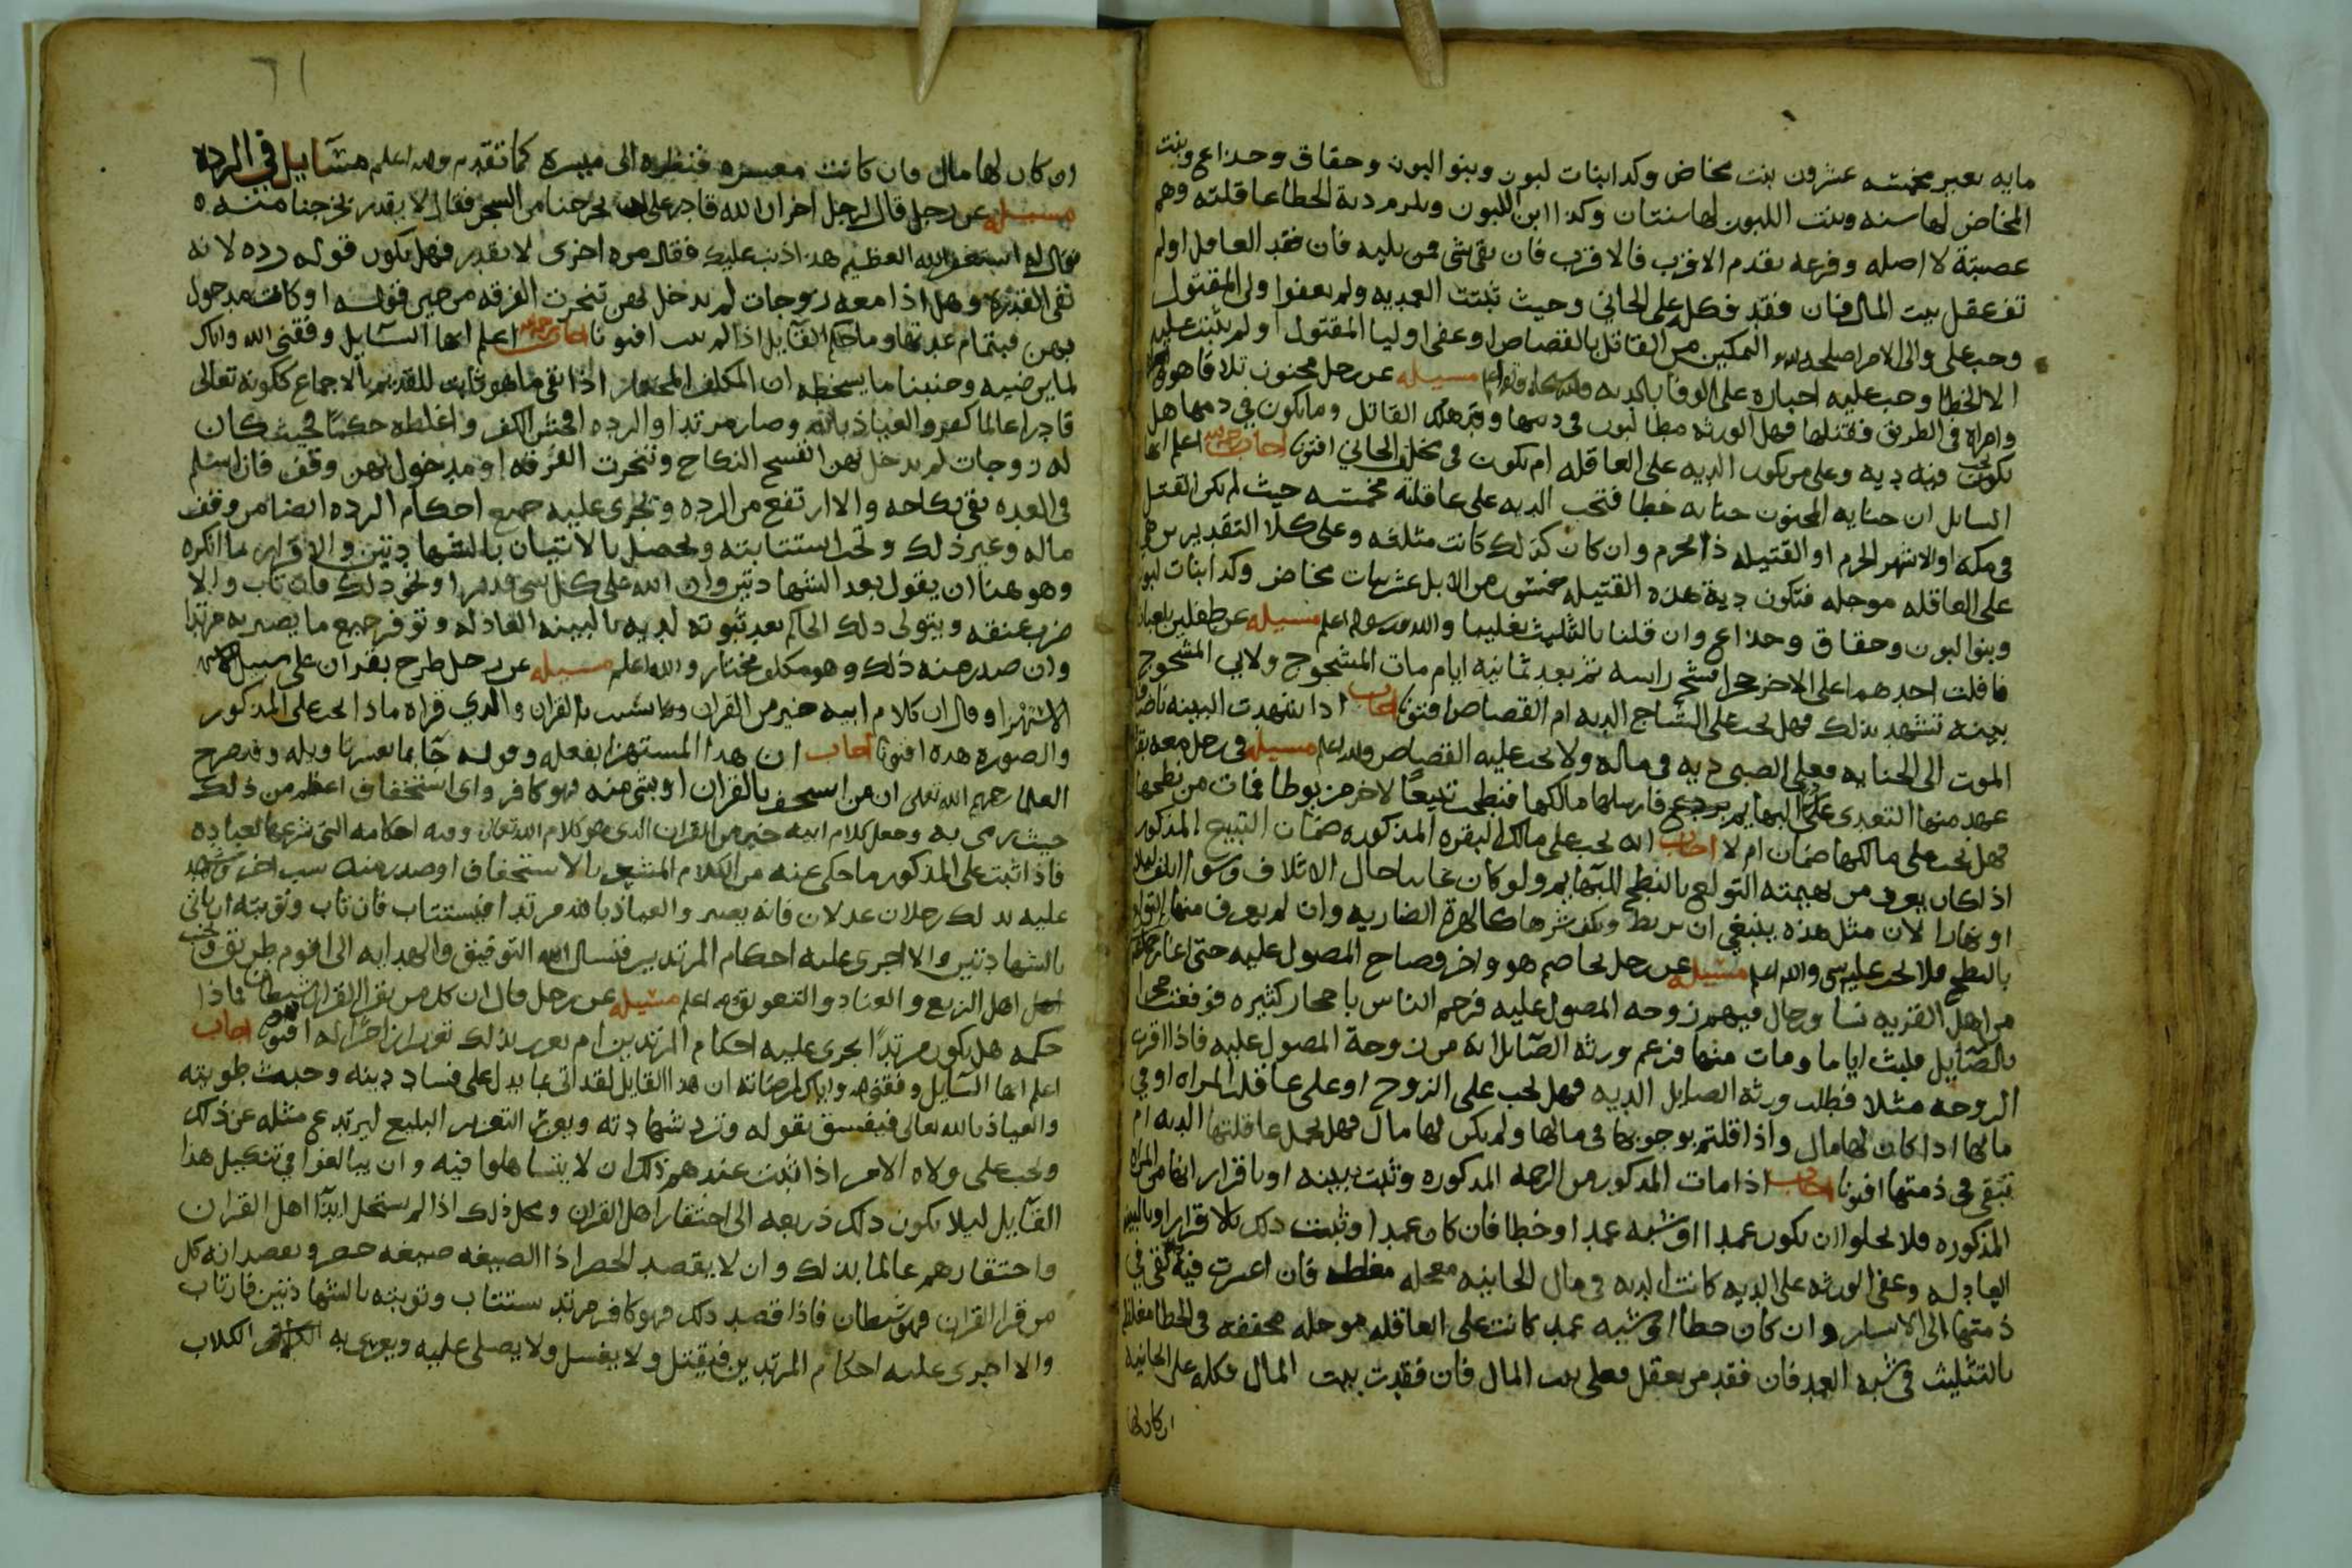 مايه بعير مخمسه عشرون بنت مخاض وكدا بنات لبون وبنو البون وحقاق وحذاع وبنت
المخاض لها سنه وبنت اللبون لها سنتان وكذا ابن اللبون ويلزم دية الخطا عاقلته وهم
عصبته لا اصله وفرعه يقدم الاقرب فالاقرب فان بقي شي فمن يليه فان فقد العاقل اولم
تف عقل بيت المال فان فقد فكله على الجاني وحيث ثبتت العمديه ولم يعفوا ولي المقتول
وجب على والى الامر اصلحه الله التمكين من القاتل بالقصاص او عفى اوليا المقتول او لم يثبت عليه
الا الخطا وجب عليه اجباره على الوفا بالديه مسيله عن رجل مجنون تلاقا هو
وامراه في الطريق فقتلها فهل الورثه مطالبون في دمها وقد هلك القاتل وما يكون في دمها هل
يكون فيه ديه وعلى من يكون الديه على العاقله ام يكون في مخلف الجاني افتونا اجاب اعلم ايها
السايل ان جنايه المجنون جنايه خطا فتجب الديه على عاقلته مخمسه حيث لم يكن القتل
في مكه او الاشهر الحرم او القتيله ذا محرم وان كان كذلك كانت مثلثه وعلى كلا التقديرين هي
على العاقله موجله فتكون دية هذه القتيله خمسون من الابل عشر بنات مخاض وكدا بنات لبون
وبنو البون وحقاق وحذاع وان قلنا بالتثليث تغليبا والله اعلم مسيله عن طفلين يلعبان
فافلت احدهما على الاخر حجرا فشج راسه ثم بعد ثمانيه ايام مات المشجوج ولابي المشجوج
بينه تشهد بذلك فهل يجب على الشاج الديه ام القصاص افتونا اجاب اذا شهدت البينه
الموت الى الجنايه فعلى الصبي ديه في ماله ولا يجب عليه القصاص والله اعلم مسيله في رجل معه بقره
عهد منها التعدى على البهايم فارسلها مالكها فنطحت تبيعا لاخر مربوطا فمات من نطحها
فهل يجب على مالكها ضمان ام لا اجاب انه يجب على مالك البقره المذكوره ضمان التبيع المذكور
اذا كان يعرف من بهيمته التولع بالنطح للبهايم ولو كان غايبا حال الاتلاف وسوا اتلف ليلا
او نهارا لان مثل هذه ينبغي ان يربط ويكف شرها كالهرة الضاريه وان لم يعرف منها التولع
بالنطح فلا يجب عليه شي والله اعلم مسيله عن رجل يخاصم هو واخر وصاح المصول عليه حتى
من اهل القريه نسا ورجال فيهم زوجه المصول عليه فرجم الناس باحجار كثيره فوقعت حجرا
بالصايل فلبث اياما ومات منها فزعم ورثه الصايل انه من زوجة المصول عليه فاذا اقرت
الزوجه مثلا فطلب ورثة الصايل الديه فهل يجب على الزوج او على عاقلة المراه او في
مالها اذا كان لها مال واذا قلتم بوجوبها في مالها ولم يكن لها مال فهل يحمل عاقلتها الديه ام
تبقى في ذمتها افتونا اجاب اذا مات المذكور من الرجمه المذكوره وثبت ببينه او باقرار انها من المراه
المذكوره فلا يخلوا ان يكون عمدا او شبه عمد او خطا فان كان عمدا وثبت ذلك بالاقرار او بالبينه
العادله وعفى الورثه على الديه كانت الديه في مال الجانيه معجله مغلظه فان اعسرت فيه بقى في
ذمتها الى الايسار وان كان خطا او شبه عمد كانت على العاقله موجله مخففه في الخطا مغلظه
بالتثليث في شبه العمد فان فقد من يعقل فعلى بيت المال فان فقدت بيت المال فكله على الجانيه
ان كان لها
٦١
ان كان لها مال وان كانت معسره فنظره الى ميسره كما تقدم والله اعلم مسايل في الرده
مسيله عن رجل قال لرجل اخر ان الله قادر على ان يخرجنا من السجن فقال لا يقدر يخرجنا منه
فقال له استغفر الله العظيم هذا ذنب عليك فقال مره اخرى لا يقدر فهل يكون قوله رده لانه
نفى القدره وهل اذا معه زوجات لم يدخل بهن تنجزت الفرقه من حين قوله او كانت مدخول
بهن فبتمام عدتها وما حكم القايل اذا لم يتب افتونا اجاب اعلم ايها السايل وفقني الله واياك
لما يرضيه وجنبنا ما يسخطه ان المكلف المختار اذا نفى ما هو ثابت للقديم بالاجماع ككونه تعالى
قادرا عالما كفر والعياذ بالله وصار مرتدا والرده افحش الكفر واغلظه حكما فحيث كان
له زوجات لم يدخل بهن انفسخ النكاح وتنجزت الفرقه او مدخول بهن وقف فان اسلم
في العده بقى نكاحه والا ارتفع من الرده وتجرى عليه جميع احكام الرده ايضا من وقف
ماله وغير ذلك وتجب استتابته ويحصل بالاتيان بالشهادتين والاقرار بما انكره
وهو هنا ان يقول بعد الشهادتين وان الله على كل شي قدير او نحو ذلك فان تاب والا
ضرب عنقه ويتولى ذلك الحاكم بعد ثبوته لديه بالبينه العادله وتوفر جميع ما يصير به مرتدا
وان صدر منه ذلك وهو مكلف مختار والله اعلم مسيله عن رجل طرح بقران على سبيل
الاستهزا وقال ان كلام ابيه خير من القران والذي قراه ماذا يجب على المذكور
والصوره هذه افتونا اجاب ان هذا المستهزا بفعله وقوله وقد صرح
العلما رحمهم الله تعالى ان من استخف بالقران او بشي منه فهو كافر واى استخفاف اعظم من ذلك
حيث رمى به وجعل كلام ابيه خير من القران الذي هو كلام الله تعالى وفيه احكامه التى شرعها لعباده
فاذا ثبت على المذكور ما حكى عنه من الكلام المشعر بالاستخفاف او صدر منه سب اخر وشهد
عليه بذلك رجلان عدلان فانه يصير والعياذ بالله مرتدا فيستتاب فان تاب وتوبته ان ياتى
بالشهادتين والا اجرى عليه احكام المرتدين فنسال الله التوفيق والهدايه الى اقوم طريق
اهل الزيغ والعناد والتعويق والله اعلم مسيله عن رجل قال ان كل من يقرا القران شيطان فماذا
حكمه هل يكون مرتدا يجرى عليه احكام المرتدين ام يعزر بذلك تعزيرا زاجرا له افتونا اجاب
اعلم ايها السايل وفقني الله واياك لمرضاته ان هذا القايل لقد اتى بما يدل على فساد دينه وخبث طويته
والعياذ بالله تعالى فيفسق بقوله وترد شهادته ويعزر التعزير البليغ ليرتدع مثله عن ذلك
ويجب على ولاه الامر اذا ثبت عندهم ذلك ان لا يتساهلوا فيه وان يبالغوا في تنكيل هذا
القايل ليلا يكون ذلك ذريعه الى احتقار اهل القران ومحل ذلك اذا لم يستحل ايذا اهل القران
واحتقارهم عالما بذلك وان لا يقصد الحصر اذا الصيغه صيغه حصر ويقصد انه كل
من قرا القران فهو شيطان فاذا قصد ذلك فهو كافر مرتد يستتاب وتوبته بالشهادتين فان تاب
والا اجرى عليه احكام المرتدين فيقتل ولا يغسل ولا يصلى عليه ويغرى به الكلاب